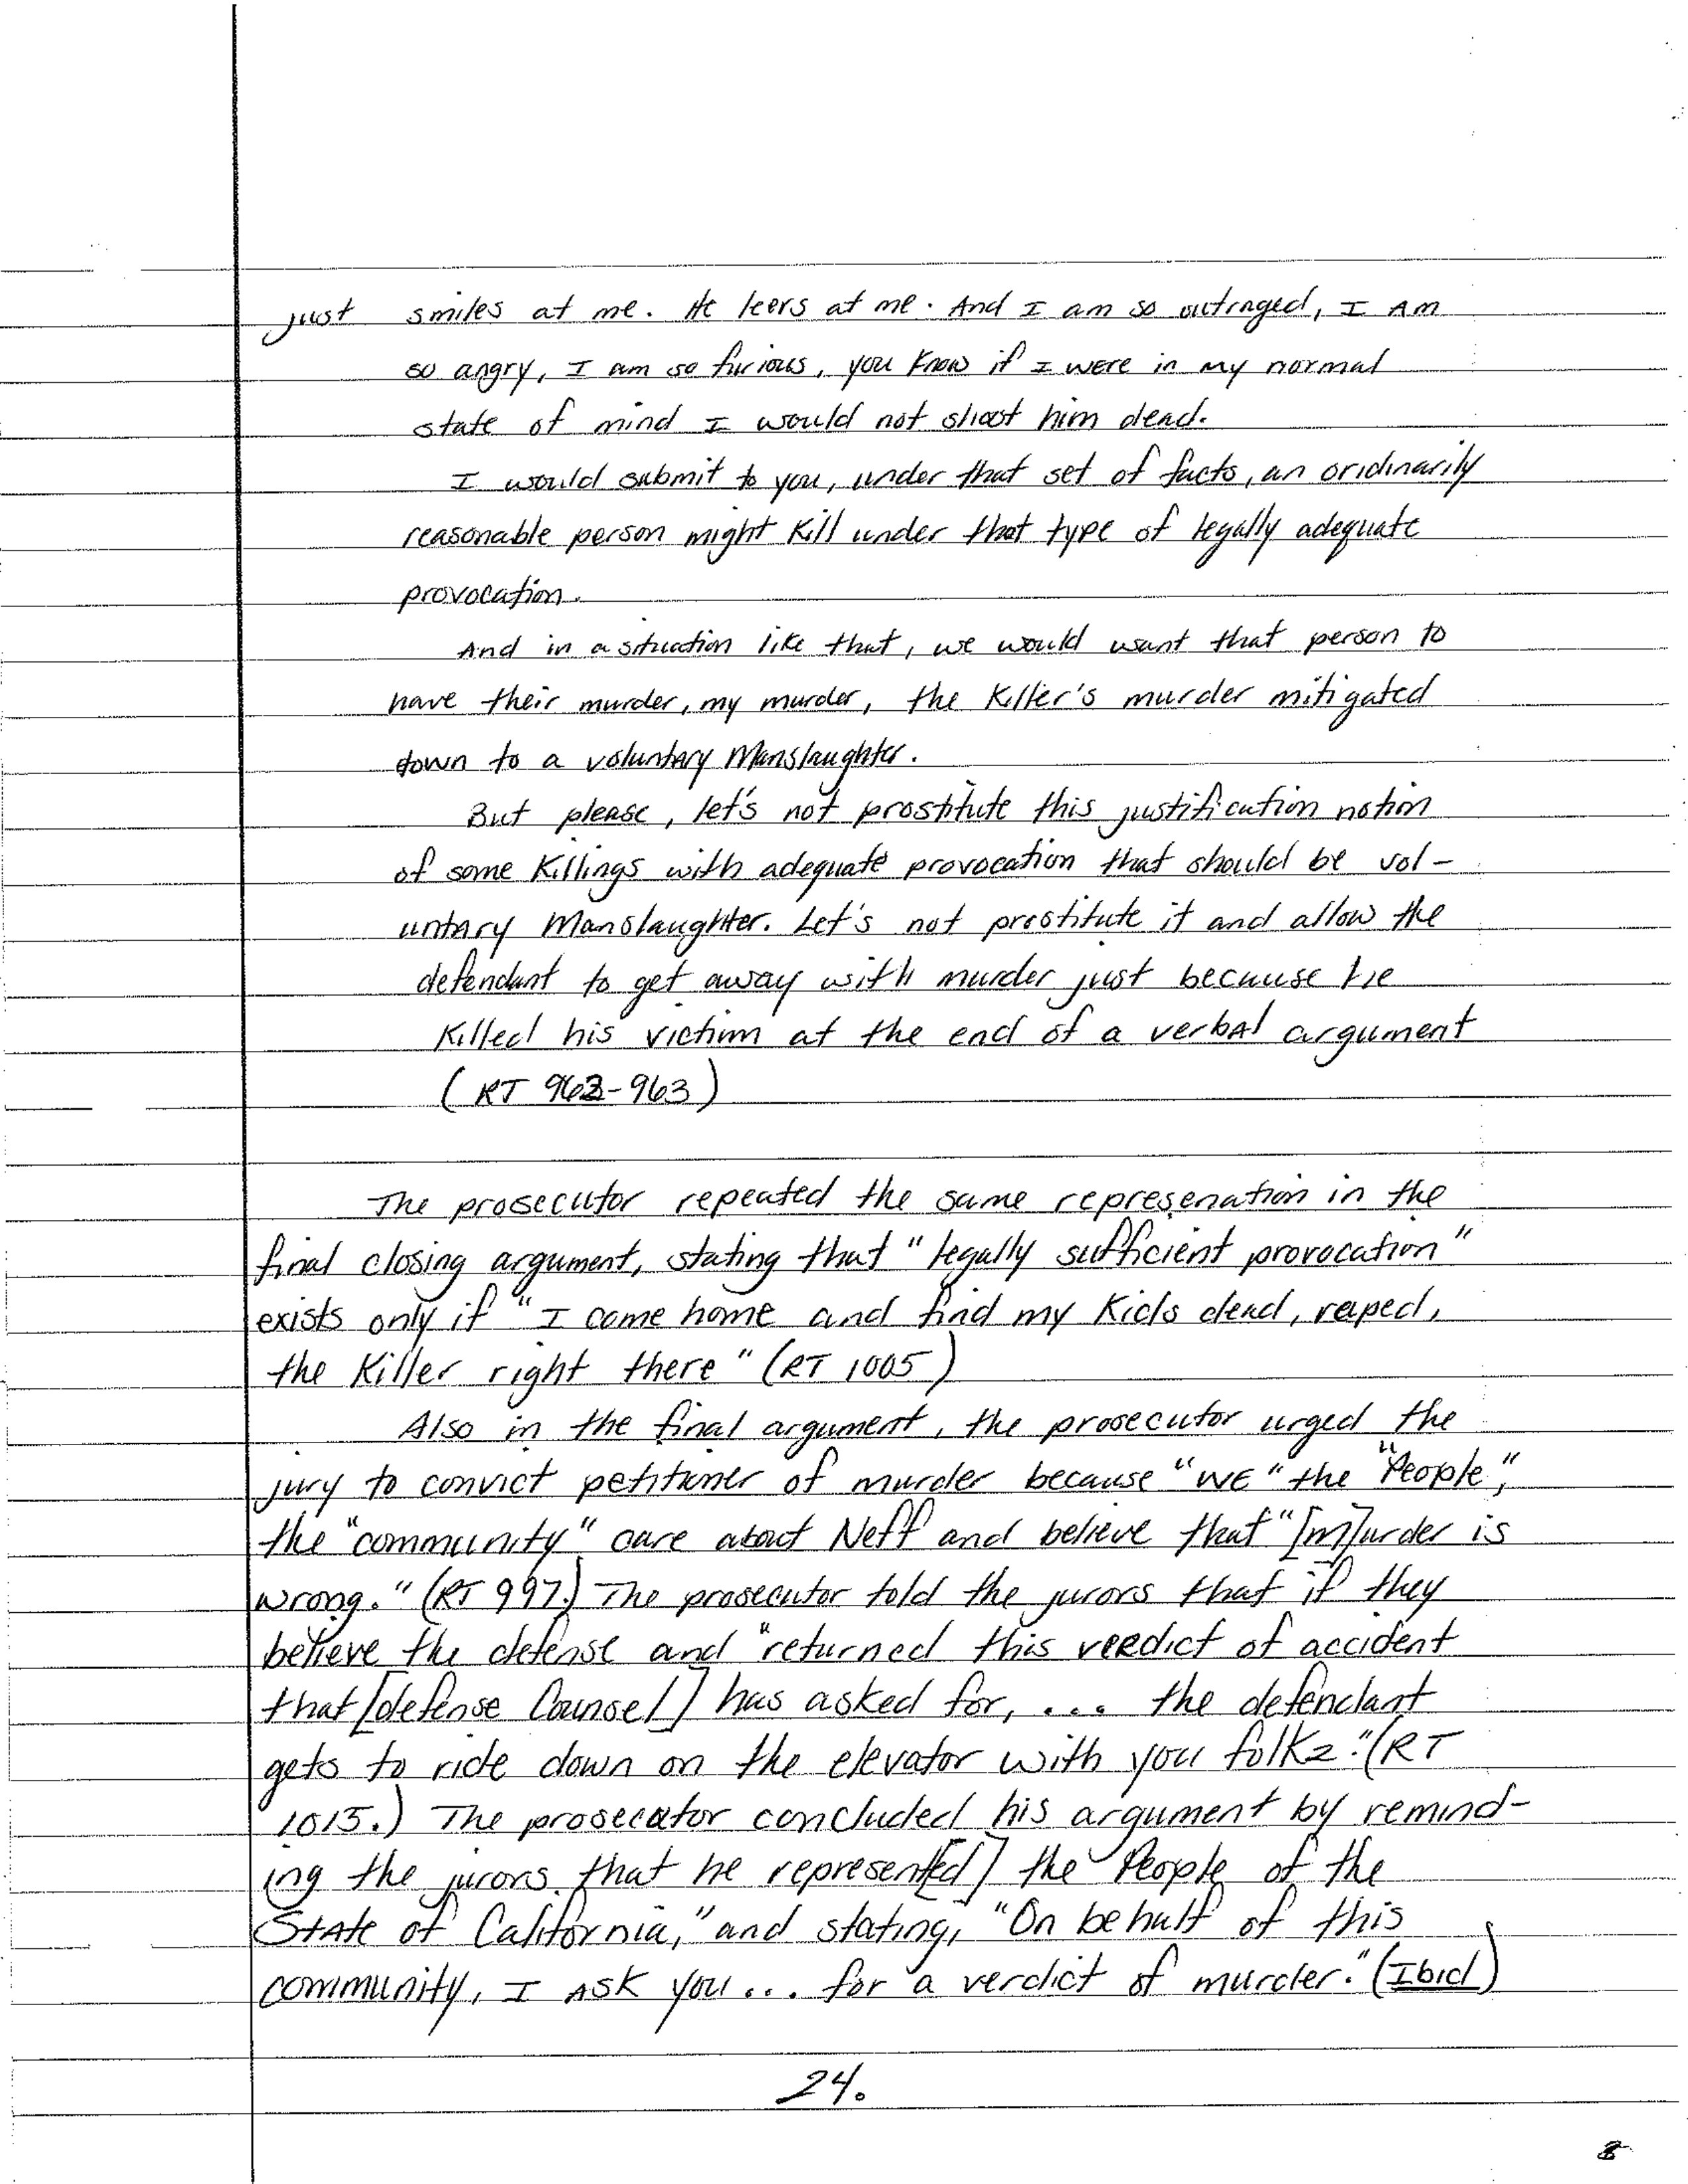 just smiles at me. He leers at me. And I am so outraged, I AM
so angry, I am so furious, you know if I were in my normal
state of mind I would not shoot him dead.
I would submit to you, under that set of facts, an oridinarily
reasonable person might kill under that type of legally adequate
provocation.
And in a situation like that, we would want that person to
have their murder, my murder, the killer's murder mitigated
down to a voluntary Manslaughter.
But please, let's not prostitute this justification notion
of some killings with adequate provocation that should be vol-
untary Manslaughter. Let's not prostitute it and allow the
defendant to get away with murder just because he
killed his victim at the end of a verbal argument
(RT 962-963)
The prosecutor repeated the same represenation in the
final closing argument, stating that "legally sufficient provocation"
exists only if "I come home and find my kids dead, raped,
the killer right there" (RT 1005)
Also in the final argument, the prosecutor urged the
jury to convict petitioner of murder because "WE" the "People",
the "community" care about Neff and believe that "[m]urder is
wrong." (RT 997.) The prosecutor told the jurors that if they
believe the defense and "returned this verdict of accident
that [defense Counsel] has asked for, ... the defendant
gets to ride down on the elevator with you folkz." (RT
1015.) The prosecutor concluded his argument by remind-
ing the jurors that he represent[ed] the "People of the
State of California," and stating, "On behalf of this
community, I ASK you ... for a verdict of murder." (Ibid)
24.
8